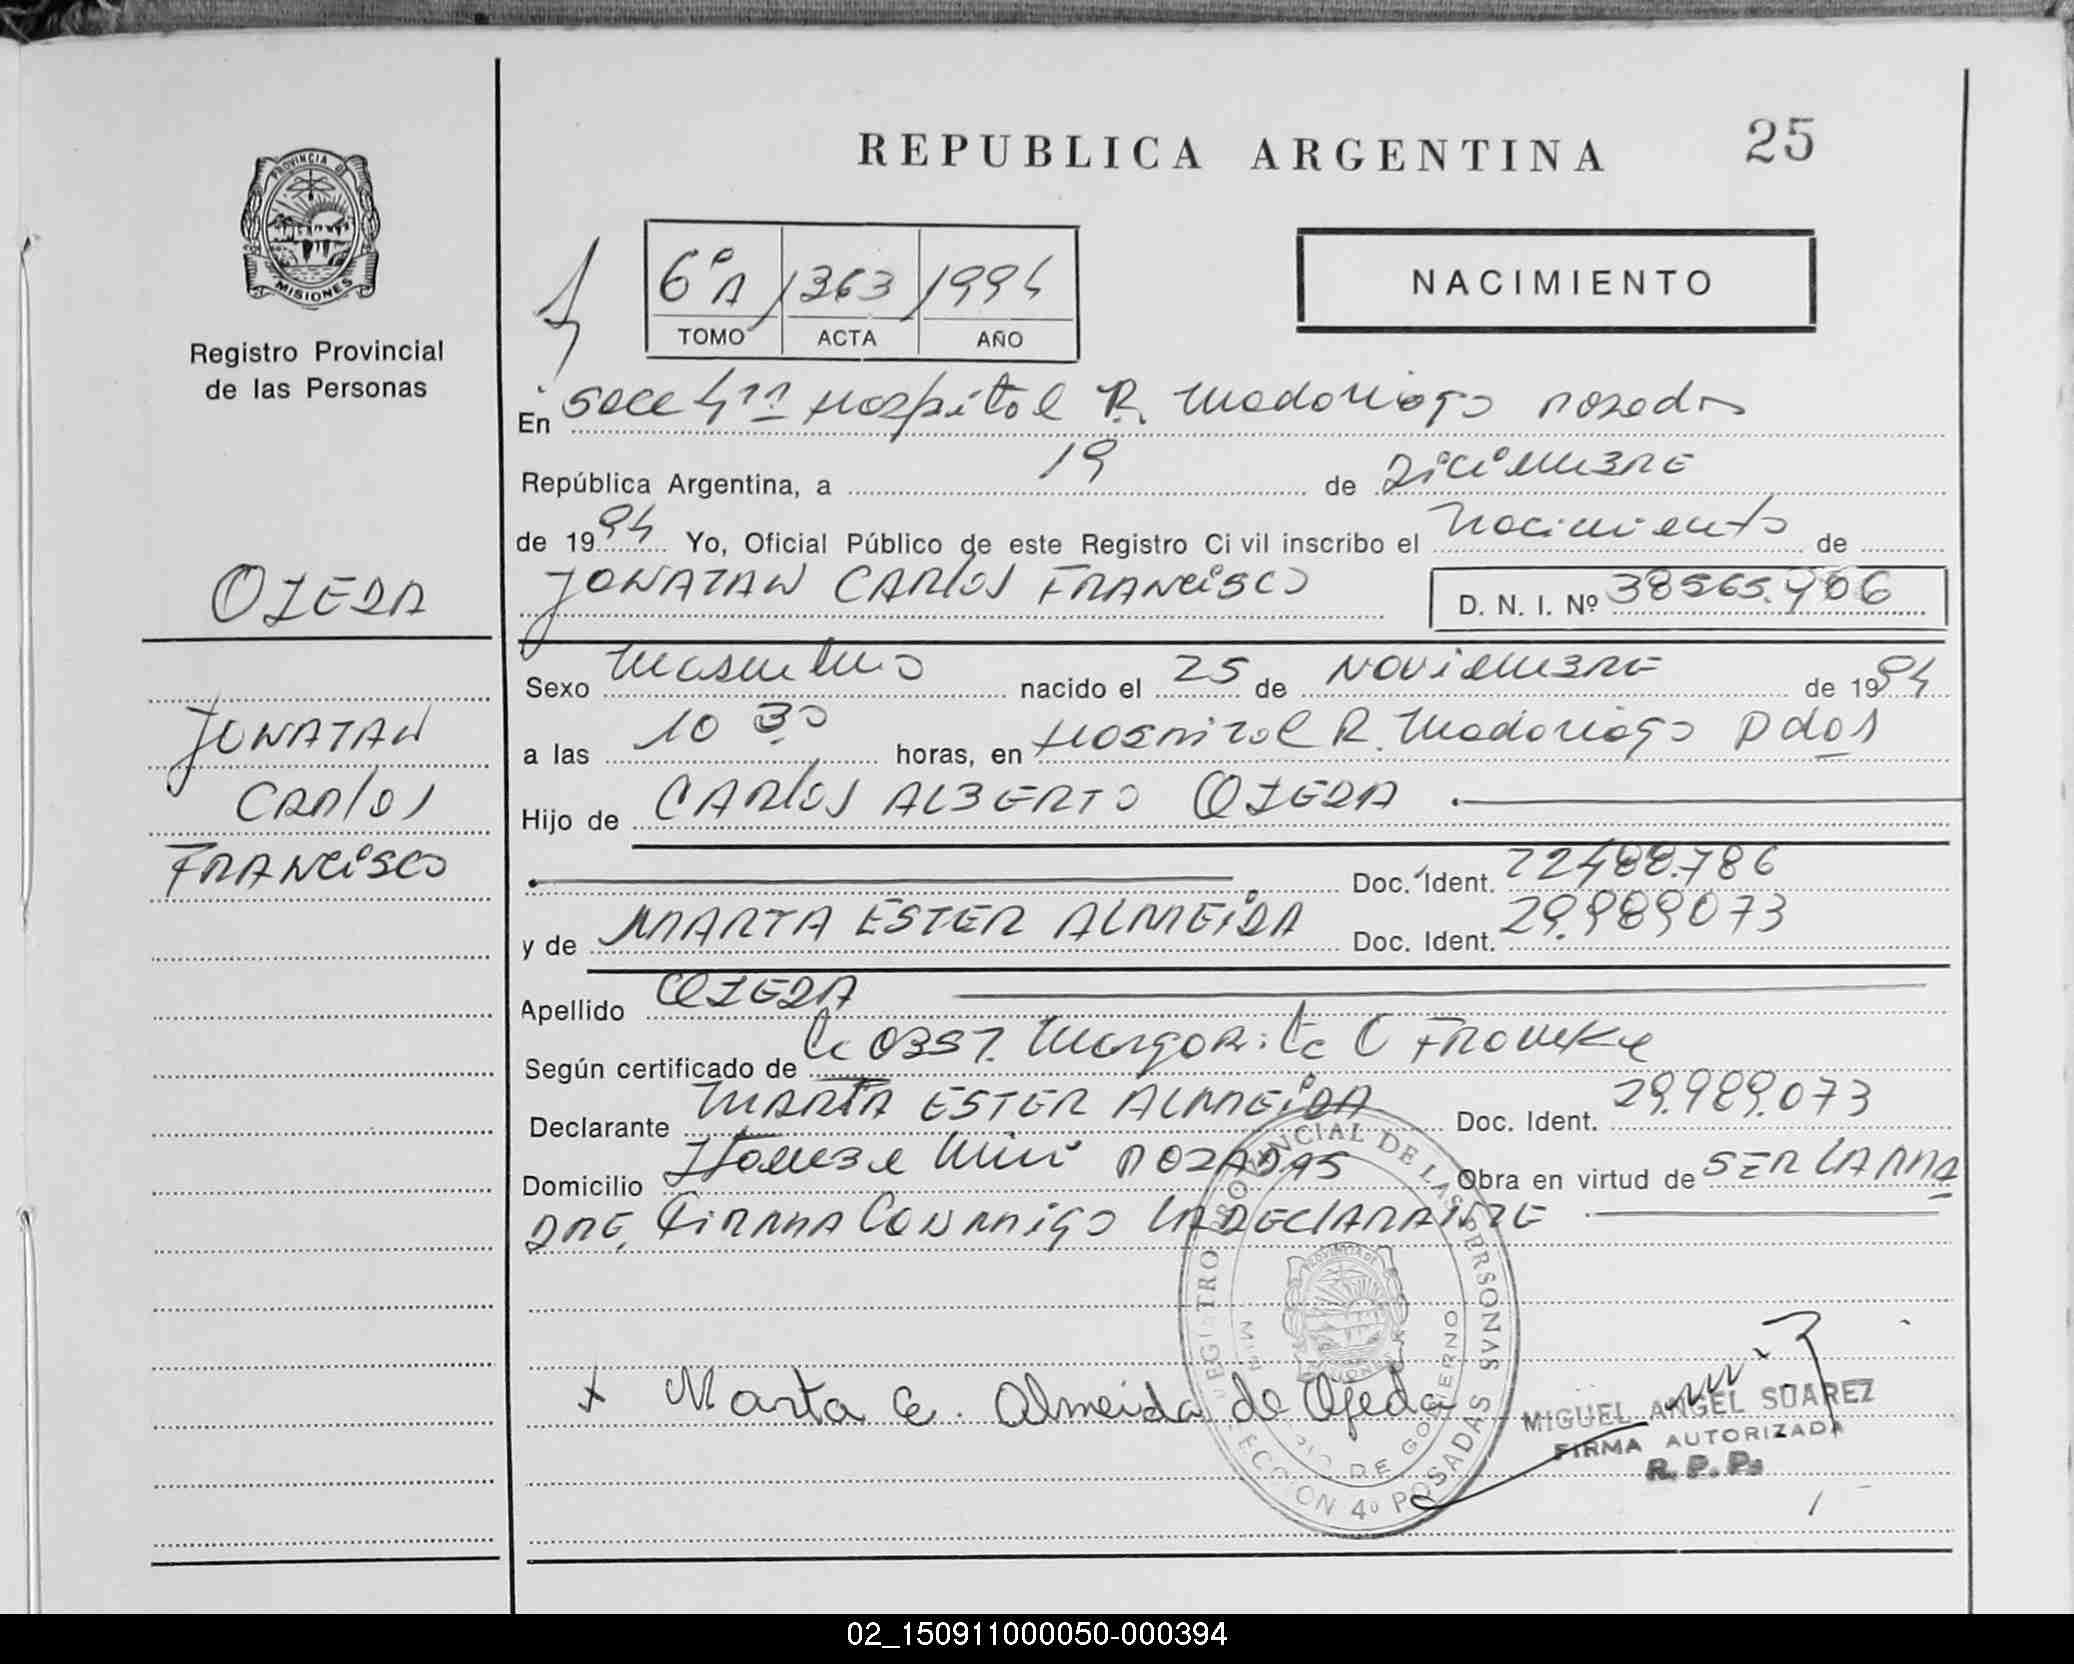 REPUBLICA ARGENTINA
25
PROVINCIA DE
MISIONES
Registro Provincial
de las Personas
6º A / 363 / 1994
TOMO ACTA AÑO
NACIMIENTO
En Secc 4ta Hospital R. Madariaga Posadas
República Argentina, a 19 de DiCiEMBRE
de 1994 Yo, Oficial Público de este Registro Civil inscribo el Nacimiento de
JONATAN CARlOS FRANCiSCO D. N. I. Nº 38565.906
OJEDA
JONATAN
CARlOS
FRANCiSCO
Sexo Masculino nacido el 25 de NOViEMBRE de 1994
a las 10 30 horas, en Hospital R. Madariaga Pdas
Hijo de CARlOS ALBERTO OJEDA
Doc. Ident. 22488.786
y de MARTA ESTER ALMEiDA Doc. Ident. 29.989073
Apellido OJEDA
Según certificado de la OBST. Margarita
Declarante MARTA ESTER ALMEiDA Doc. Ident. 29.989.073
Domicilio Itaembe Mini POSADAS Obra en virtud de SER LA MA
DRE, FiRMA CONMigO LA DECLARANTE
REGISTRO PROVINCIAL DE LAS PERSONAS
MINISTERIO DE GOBIERNO
SECCION 4º POSADAS
x Marta E. Almeida de Ojeda
MIGUEL ANGEL SUAREZ
FIRMA AUTORIZADA
R. P. P.
02_150911000050-000394